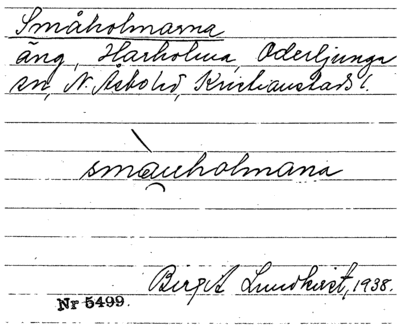 Småholmarna
äng, Harholma, Oderljunga
sn, N. Åsbo hd, Kristianstads l.
smàuholmana
Birgit Lundkvist, 1938.
Nr 5499.